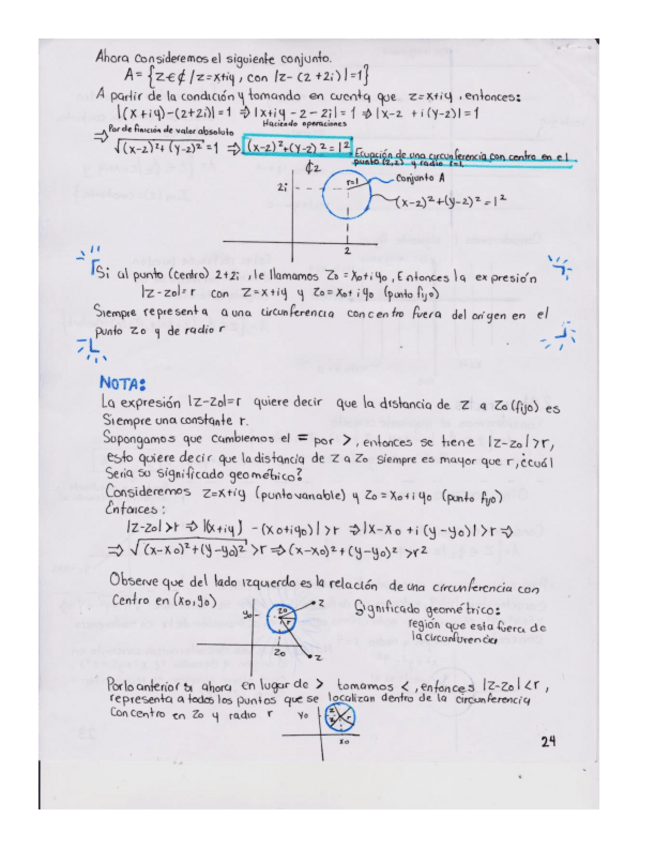 Ahora consideremos el siguiente conjunto.
A = {z∈₵ / z=x+iy, con |z-(2+2i)|=1}
A partir de la condición y tomando en cuenta que z=x+iy, entonces:
|(x+iy)-(2+2i)|=1 ⇒ |x+iy-2-2i|=1 ⇒ |x-2 +i(y-2)|=1
Haciendo operaciones
⇒ Por definición de valor absoluto
√(x-2)²+(y-2)² =1 ⇒ (x-2)²+(y-2)²=1² Ecuación de una circunferencia con centro en el
punto (2,2) y radio r=1
₵z
2i r=1 Conjunto A
(x-2)²+(y-2)²=1²
2
Si al punto (centro) 2+2i, le llamamos Zo=Xo+iyo, Entonces la expresión
|z-zo|=r con z=x+iy y Zo=Xo+iyo (punto fijo)
Siempre representa a una circunferencia con centro fuera del origen en el
punto zo y de radio r
NOTA:
La expresión |z-zo|=r quiere decir que la distancia de z a zo (fijo) es
Siempre una constante r.
Supongamos que cambiemos el = por >, entonces se tiene |z-zo|>r,
esto quiere decir que la distancia de z a zo siempre es mayor que r, ¿cuál
Seria su significado geométrico?
Consideremos z=x+iy (punto variable) y Zo=Xo+iyo (punto fijo)
Entonces:
|z-zo|>r ⇒ |(x+iy) -(xo+iyo)|>r ⇒ |x-xo +i(y-yo)|>r ⇒
⇒ √(x-xo)²+(y-yo)² >r ⇒ (x-xo)²+(y-yo)² >r²
Observe que del lado izquierdo es la relación de una circunferencia con
Centro en (xo,yo)
yo zo r z
zo z
Significado geométrico:
región que esta fuera de
la circunferencia
Por lo anterior si ahora en lugar de > tomamos <, entonces |z-zo|<r,
representa a todos los puntos que se localizan dentro de la circunferencia
Con centro en zo y radio r
yo z r
xo
24